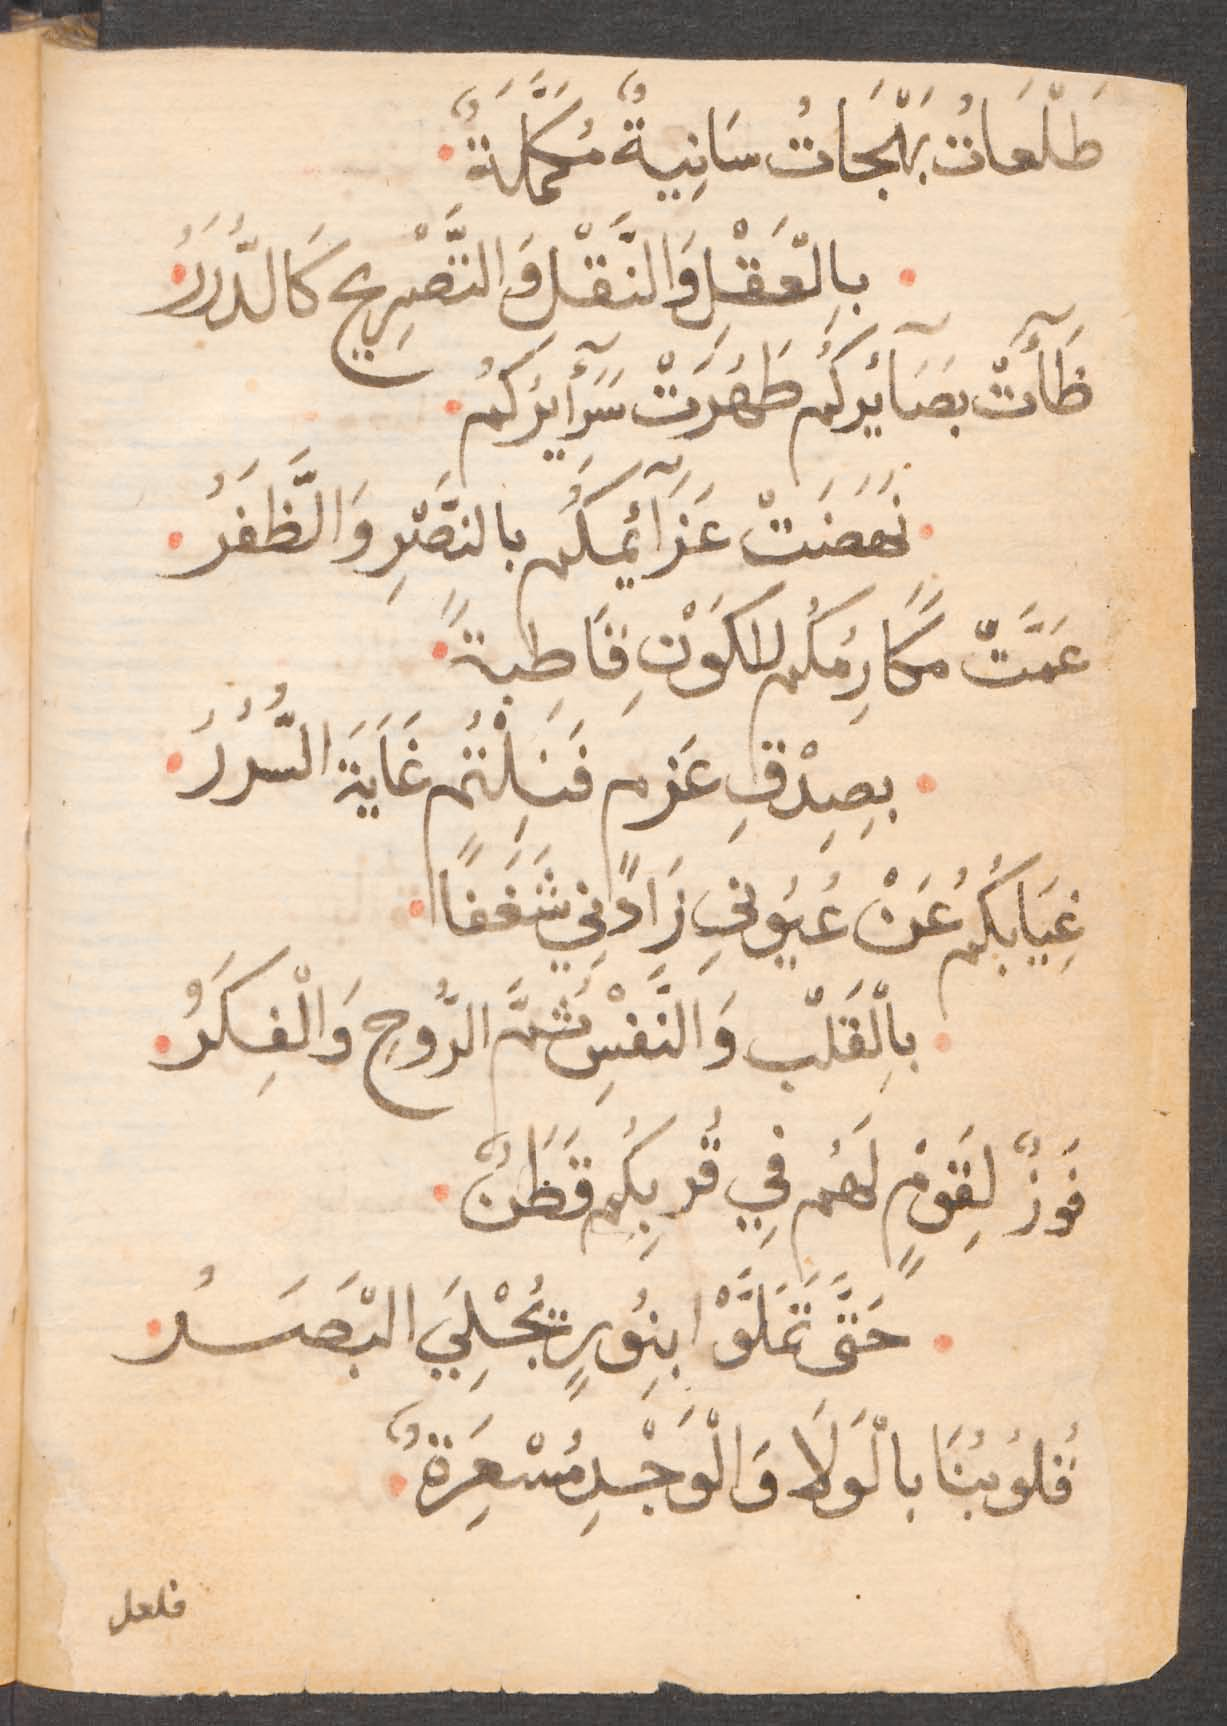 طَلْعَاتُ بَهْجَاتُ سَانِيةٌ مُكَمَّلَةٌ
بِالْعَقْلِ وَالنَّقْلِ وَالتَّصْرِيحِ كَالدُّرَرُ
ظَآءَتْ بَصَآئِرُكُمْ طَهُرَتْ سَرَآئِرُكُمْ
نَهَضَتْ عَزَآئِمُكُم بِالنَّصْرِ وَالظَّفَرُ
عَمَّتْ مَكَارِمُكُم لِلكَوْنِ قَاطِبةً
بِصِدْقِ عَزمٍ فَنَلِلْتُم غَايَةَ السُّرُرُ
غِيَابُكُمُ عَنْ عُيُونِي زَادَنِي شَغَفًا
بِالْقَلْبِ وَالنَّفْسِ ثُمَّ الرُّوحِ وَالْفِكَرُ
فَوزٌ لِقَومٍ لَهُم فِي قُربِكُم قَطَنٌ
حَتَّى تَمَلَّوْا بِنُورٍ يُجْلِيَ الْبَصَرُ
قُلُوبُنَا بِالْوَلَا وَالْوَجْدِ مُسْعَرَةٌ
فلعل